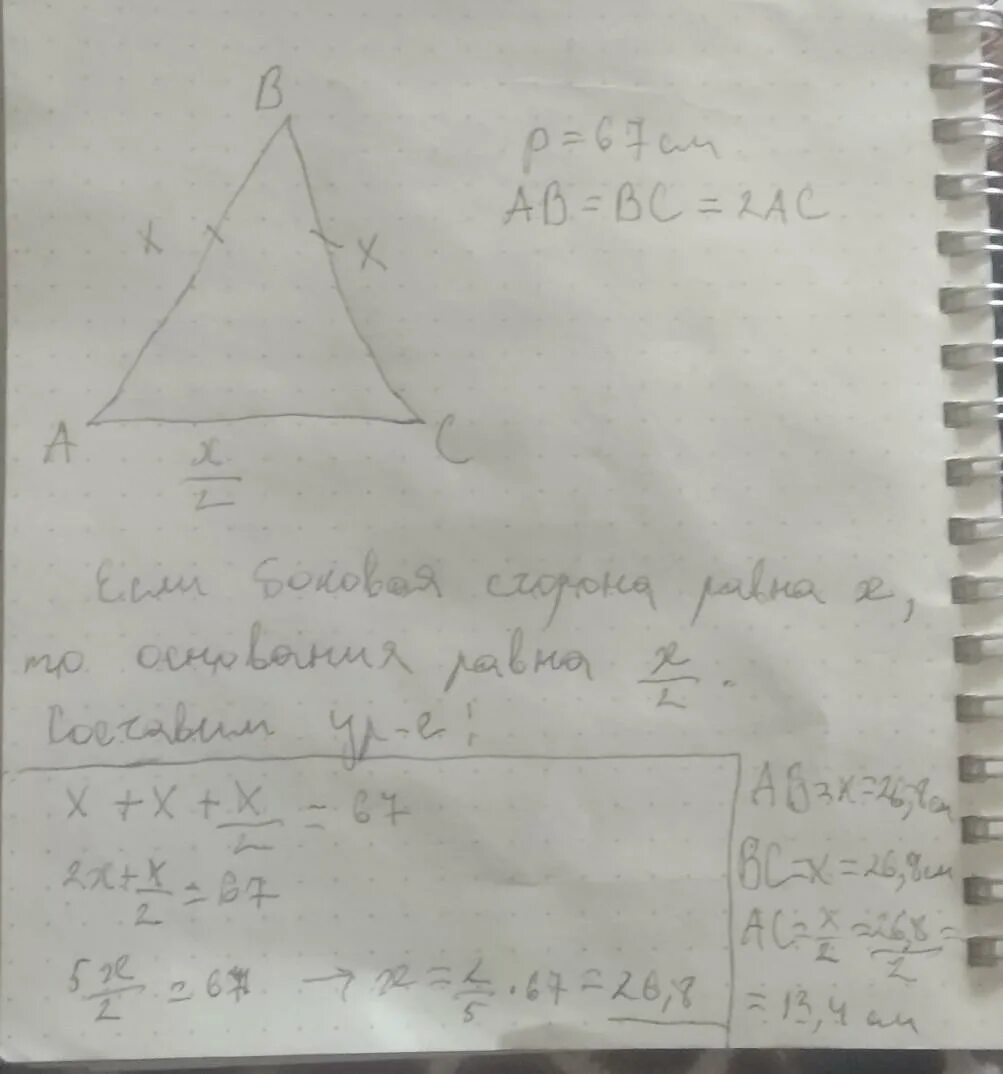 B
p = 67 см
AB = BC = 2AC
x
x
A
C
x/2
Если боковая сторона равна x,
то основания равна x/2.
Составим ур-е:
x + x + x/2 = 67
2x + x/2 = 67
5x/2 = 67 → x = 2/5 · 67 = 26,8
AB = x = 26,8 см
BC = x = 26,8 см
AC = x/2 = 26,8/2 =
= 13,4 см